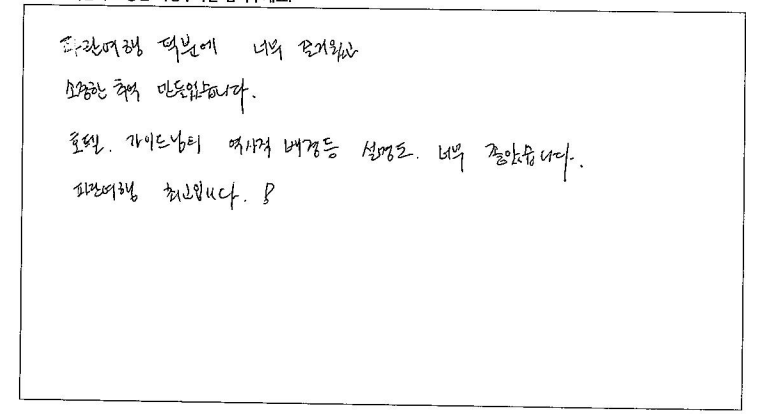 파란여행 덕분에 너무 즐거웠고
소중한 추억 만들었습니다.
호텔. 가이드님의 역사적 배경등 설명도. 너무 좋았습니다.
파란여행 최고입니다. !